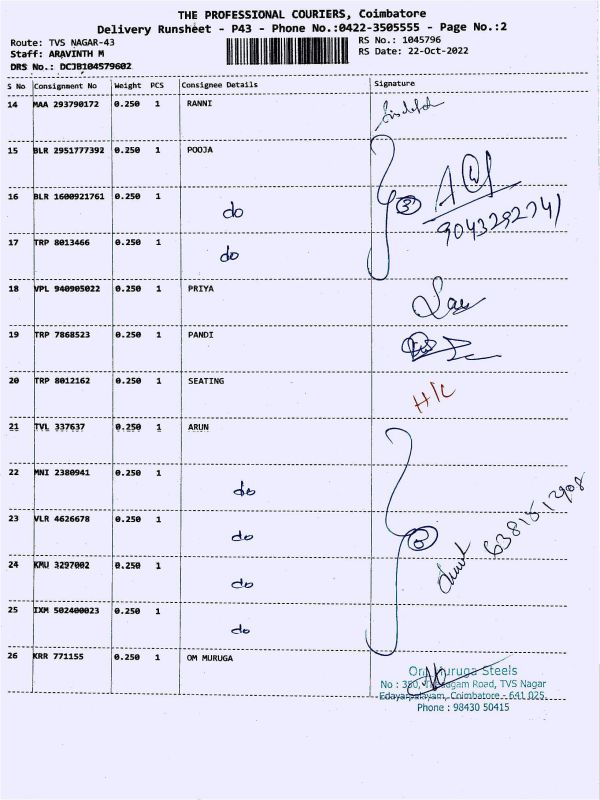 THE PROFESSIONAL COURIERS, Coimbatore
Delivery Runsheet - P43 - Phone No.:0422-3505555 - Page No.:2
Route: TVS NAGAR-43 RS No.: 1045796
Staff: ARAVINTH M RS Date: 22-Oct-2022
DRS No.: DCJB104579602
S No Consignment No Weight PCS Consignee Details Signature
14 MAA 293790172 0.250 1 RANNI
15 BLR 2951777392 0.250 1 POOJA
16 BLR 1600921761 0.250 1 do 3
9043292741
17 TRP 8013466 0.250 1 do
18 VPL 940905022 0.250 1 PRIYA
19 TRP 7868523 0.250 1 PANDI
20 TRP 8012162 0.250 1 SEATING H/C
21 TVL 337637 0.250 1 ARUN
22 MNI 2380941 0.250 1 do
23 VLR 4626678 0.250 1 do 5 6381512908
24 KMU 3297002 0.250 1 do
25 IXM 502400023 0.250 1 do
26 KRR 771155 0.250 1 OM MURUGA
Om Muruga Steels
No : 350, Road, TVS Nagar
Edayarpalayam, Coimbatore - 641 025.
Phone : 98430 50415